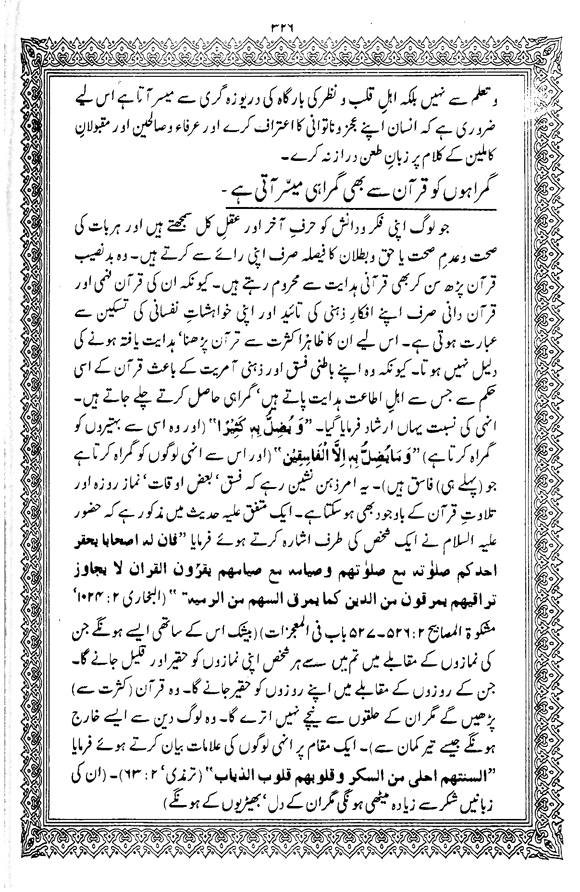 ۳۲۶
و تعلم سے نہیں بلکہ اہلِ قلب و نظر کی بارگاہ کی دریوزہ گری سے میسر آتا ہے اس لیے
ضروری ہے کہ انسان اپنے عجز و ناتوانی کا اعتراف کرے اور عرفاء و صالحین اور مقبولان
کاملین کے کلام پر زبانِ طعن دراز نہ کرے۔
گمراہوں کو قرآن سے بھی گمراہی میسّر آتی ہے۔
جو لوگ اپنی فکر و دانش کو حرفِ آخر اور عقلِ کل سمجھتے ہیں اور ہر بات کی
صحت و عدمِ صحت یا حق و بطلان کا فیصلہ صرف اپنی رائے سے کرتے ہیں۔ وہ بد نصیب
قرآن پڑھ سن کر بھی قرآنی ہدایت سے محروم رہتے ہیں۔ کیونکہ ان کی قرآن فہمی اور
قرآن دانی صرف اپنے افکارِ ذہنی کی تائید اور اپنی خواہشاتِ نفسانی کی تسکین سے
عبارت ہوتی ہے۔ اس لیے ان کا ظاہراً کثرت سے قرآن پڑھنا‘ ہدایت یافتہ ہونے کی
دلیل نہیں ہوتا۔ کیونکہ وہ اپنے باطنی فسق اور ذہنی آمریت کے باعث قرآن کے اسی
حکم سے جس سے اہلِ اطاعت ہدایت پاتے ہیں‘ گمراہی حاصل کرتے چلے جاتے ہیں۔
انہی کی نسبت یہاں ارشاد فرمایا گیا۔ ”وَ يُضِلُّ بِهٖ كَثِيْرًا“ (اور وہ اسی سے بہتیروں کو
گمراہ کرتا ہے) ”وَ مَا يُضِلُّ بِهٖ اِلَّا الْفَاسِقِيْنَ“ (اور اس سے انہی لوگوں کو گمراہ کرتا ہے
جو (پہلے ہی) فاسق ہیں)۔ یہ امر ذہن نشین رہے کہ فسق‘ بعض اوقات‘ نماز روزہ اور
تلاوتِ قرآن کے باوجود بھی ہو سکتا ہے۔ ایک متفق علیہ حدیث میں مذکور ہے کہ حضور
علیہ السلام نے ایک شخص کی طرف اشارہ کرتے ہوئے فرمایا ”فان له اصحابا يحقر
احدكم صلوٰته مع صلوٰتهم وصيامه مع صيامهم يقرؤن القران لا يجاوز
تراقيهم يمرقون من الدين كما يمرق السهم من الرمية “ (البخاری ۲ : ۱۰۲۴‘
مشکوٰۃ المصابیح ۲ : ۵۲۶۔ ۵۲۷ باب فی المعجزات) (بیشک اس کے ساتھی ایسے ہونگے جن
کی نمازوں کے مقابلے میں تم میں سے ہر شخص اپنی نمازوں کو حقیر اور قلیل جانے گا۔
جن کے روزوں کے مقابلے میں اپنے روزوں کو حقیر جانے گا۔ وہ قرآن (کثرت سے)
پڑھیں گے مگر ان کے حلقوں سے نیچے نہیں اترے گا۔ وہ لوگ دین سے ایسے خارج
ہونگے جیسے تیر کمان سے)۔ ایک مقام پر انہی لوگوں کی علامات بیان کرتے ہوئے فرمایا
”السنتهم احلى من السكر وقلوبهم قلوب الذياب“ (ترمذی‘ ۲ : ۶۳)۔ (ان کی
زبانیں شکر سے زیادہ میٹھی ہونگی مگر ان کے دل‘ بھیڑیوں کے ہونگے)